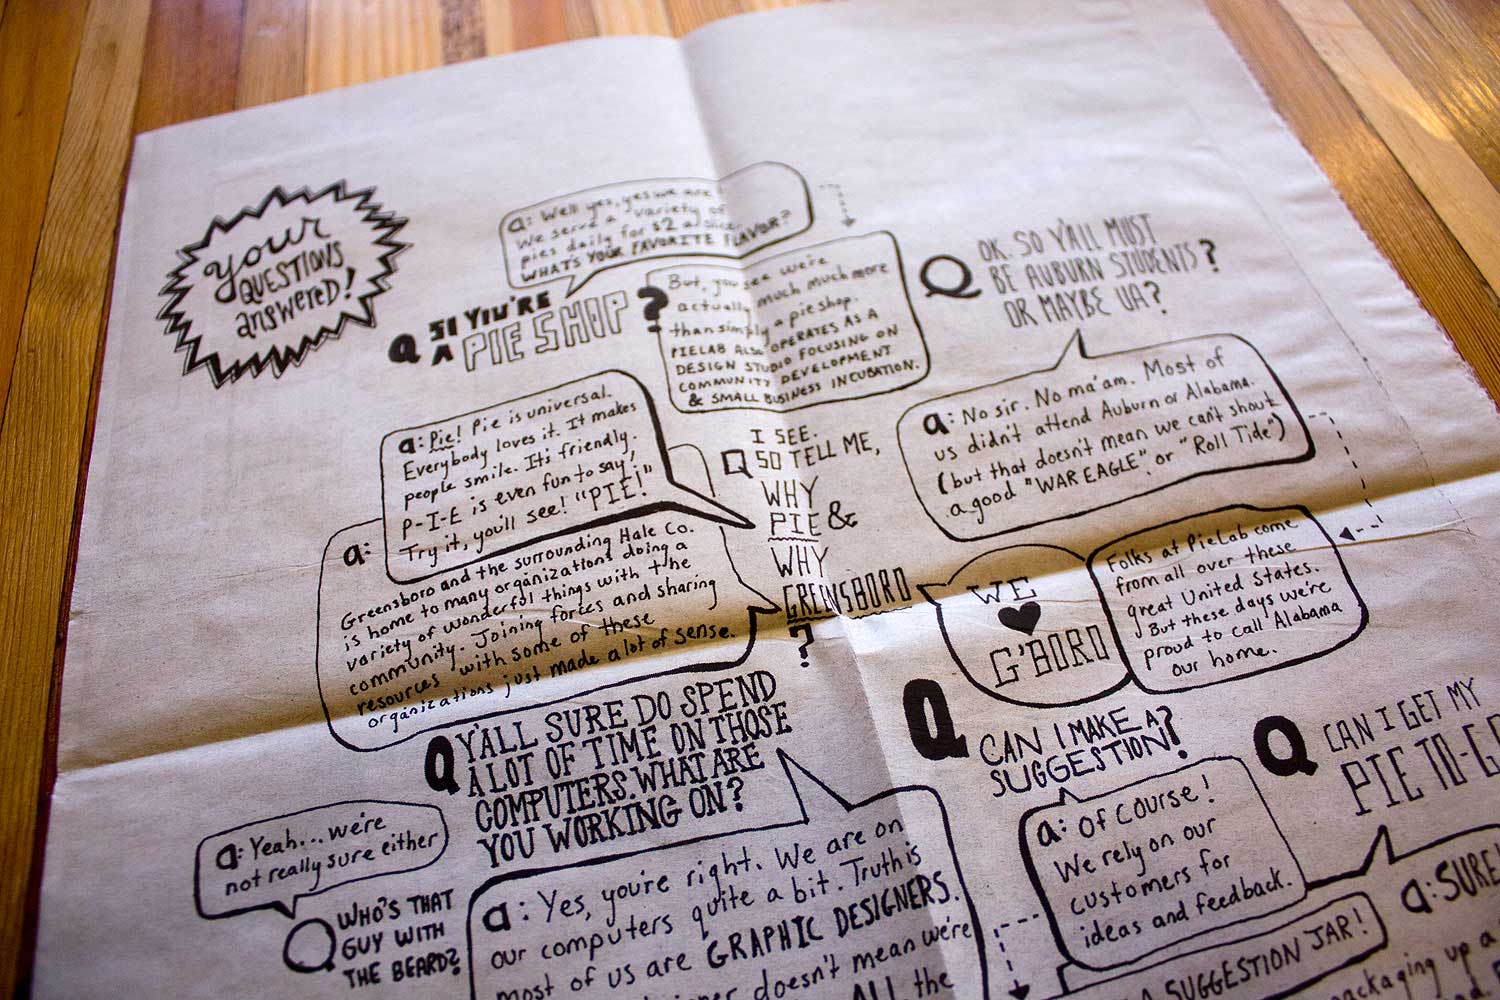 your
QUESTIONS
answered!
a: Well yes, yes we are
We serve a variety of
pies daily for $2 a slice
WHAT'S YOUR FAVORITE FLAVOR?
Q SO YOU'RE
A PIE SHOP?
But, you see we're
actually much much more
than simply a pie shop.
PIELAB ALSO OPERATES AS A
DESIGN STUDIO FOCUSING ON
COMMUNITY DEVELOPMENT
& SMALL BUSINESS INCUBATION.
Q OK. SO Y'ALL MUST
BE AUBURN STUDENTS?
OR MAYBE UA?
a: No sir. No ma'am. Most of
us didn't attend Auburn or Alabama.
(but that doesn't mean we can't shout
a good "WAR EAGLE". or "Roll Tide")
Folks at PieLab come
from all over these
great United States.
But these days we're
proud to call Alabama
our home.
I SEE.
Q SO TELL ME,
WHY
PIE &
WHY
GREENSBORO
?
a: Pie! Pie is universal.
Everybody loves it. It makes
people smile. It's friendly.
P-I-E is even fun to say!
Try it, you'll see! "PIE!"
a:
Greensboro and the surrounding Hale Co.
is home to many organizations doing a
variety of wonderful things with the
community. Joining forces and sharing
resources with some of these
organizations just made a lot of sense.
WE
♥
G'BORO
Q Y'ALL SURE DO SPEND
A LOT OF TIME ON THOSE
COMPUTERS. WHAT ARE
YOU WORKING ON?
a: Yes, you're right. We are on
our computers quite a bit. Truth is
most of us are GRAPHIC DESIGNERS.
doesn't mean we're
ALL the
a: Yeah... we're
not really sure either
Q WHO'S THAT
GUY WITH
THE BEARD?
Q CAN I MAKE A
SUGGESTION?
a: Of course!
We rely on our
customers for
ideas and feedback.
A SUGGESTION JAR!
Q CAN I GET MY
PIE TO-G
a: SURE!
packaging up a